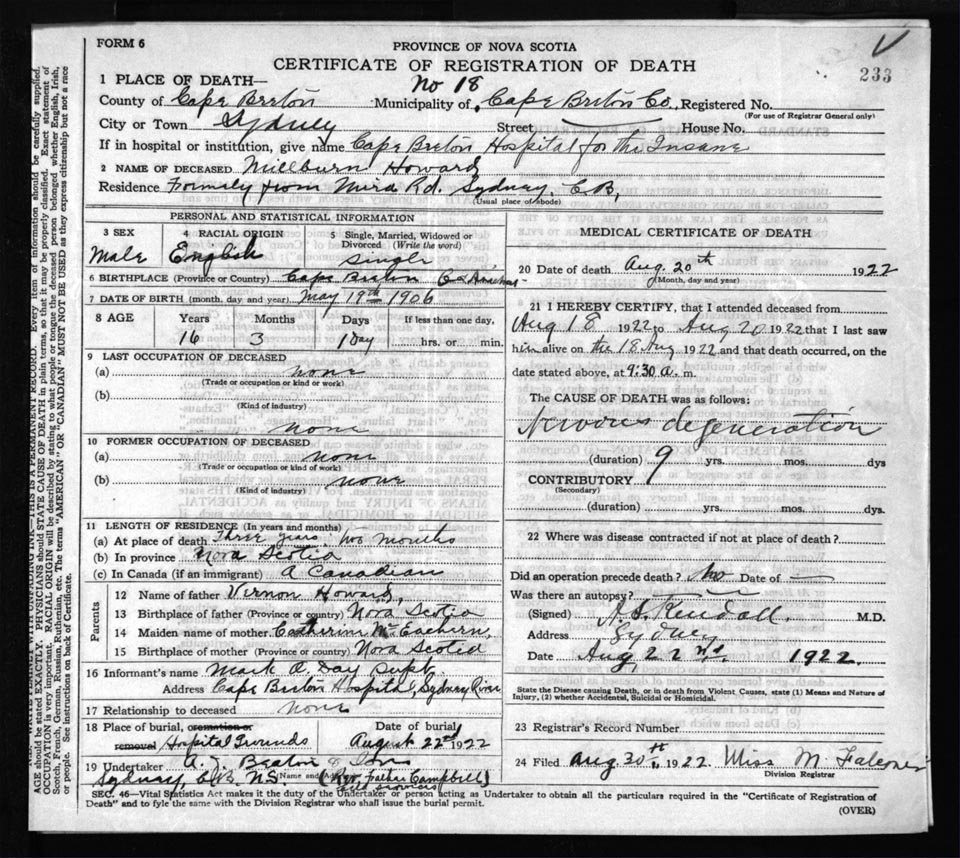 FORM 6
PROVINCE OF NOVA SCOTIA
CERTIFICATE OF REGISTRATION OF DEATH
233
1 PLACE OF DEATH— No 18
County of Cape Breton Municipality of Cape Breton Co. Registered No.
(For use of Registrar General only)
City or Town Sydney Street House No.
If in hospital or institution, give name Cape Breton Hospital for the Insane
2 NAME OF DECEASED Millburn Howard
Residence Formely from Mira Rd. Sydney, C.B.
(Usual place of abode)
PERSONAL AND STATISTICAL INFORMATION
3 SEX Male
4 RACIAL ORIGIN English
5 Single, Married, Widowed or Divorced (Write the word) Single
6 BIRTHPLACE (Province or Country) Cape Breton Co
7 DATE OF BIRTH (month, day and year) May 19th 1906
8 AGE Years Months Days If less than one day,
16 3 1 Day hrs. or min.
9 LAST OCCUPATION OF DECEASED
(a) none
(Trade or occupation or kind or work)
(b)
(Kind of industry)
none
10 FORMER OCCUPATION OF DECEASED
(a) none
(Trade or occupation or kind of work)
(b) none
(Kind of industry)
11 LENGTH OF RESIDENCE (In years and months)
(a) At place of death Three years, two months
(b) In province Nova Scotia
(c) In Canada (if an immigrant) A Canadian
Parents
12 Name of father Vernon Howard,
13 Birthplace of father (Province or country) Nova Scotia
14 Maiden name of mother Catherine McEachern,
15 Birthplace of mother (Province or country) Nova Scotia
16 Informant's name Mark A. Day Supt
Address Cape Breton Hospital, Sydney River
17 Relationship to deceased none
18 Place of burial, cremation or removal Hospital Grounds
Date of burial August 22nd 1922
19 Undertaker A. J. Beaton & Son
Sydney C.B. N.S. Name and (Rev. Father Campbell)
MEDICAL CERTIFICATE OF DEATH
20 Date of death Aug. 20th 1922
(Month, day and year)
21 I HEREBY CERTIFY, that I attended deceased from
Aug 18 1922 to Aug 20 1922 that I last saw
him alive on the 18 Aug 1922 and that death occurred, on the
date stated above, at 9:30 a. m.
The CAUSE OF DEATH was as follows:
Nervous degeneration
(duration) 9 yrs. mos. dys
CONTRIBUTORY
(Secondary)
(duration) yrs. mos. dys.
22 Where was disease contracted if not at place of death?
Did an operation precede death? No Date of —
Was there an autopsy? —
(Signed) A. S. Kendall M.D.
Address Sydney
Date Aug. 22nd. 1922.
State the Disease causing Death, or in death from Violent Causes, state (1) Means and Nature of
Injury, (2) whether Accidental, Suicidal or Homicidal.
23 Registrar's Record Number
24 Filed Aug. 30th 1922. Miss M.
Division Registrar
SEC. 46—Vital Statistics Act makes it the duty of the Undertaker or person acting as Undertaker to obtain all the particulars required in the "Certificate of Registration of
Death" and to fyle the same with the Division Registrar who shall issue the burial permit.
(OVER)
THIS IS A PERMANENT RECORD. Every item of information should be carefully supplied.
AGE should be stated EXACTLY. PHYSICIANS should STATE CAUSE OF DEATH in plain terms, so that it may be properly classified. Exact statement of
OCCUPATION is very important. RACIAL ORIGIN will be described by stating to what people or tongue the deceased person belonged whether English, Irish,
Scotch, French, German, Russian, Ruthenian, etc. The terms "AMERICAN" OR "CANADIAN" MUST NOT BE USED as they express citizenship but not a race
or people. See instructions on back of Certificate.